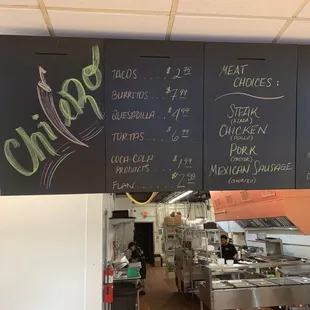 Chilero
TACOS .... $2.75
BURRITOS .... $7.99
QUESADILLA .. $4.99
TORTAS .... $6.99
COCA-COLA
PRODUCTS .... $1.99
FLAN ..... $2.99
MEAT
CHOICES:
STEAK
CHICKEN
(POLLO)
PORK
MEXICAN SAUSAGE
(CHORIZO)